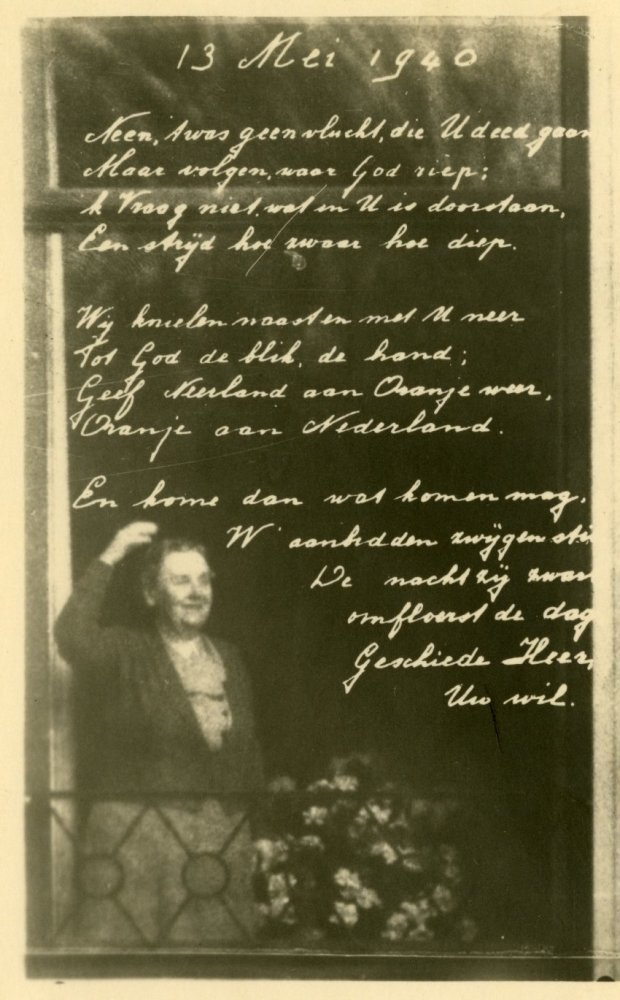 13 Mei 1940
Neen, 't was geen vlucht, die U deed gaan
Maar volgen, waar God riep;
'k Vraag niet, wat in U is doorstaan,
Een strijd hoe zwaar hoe diep.
Wij knielen naast en met U neer
Tot God de blik, de hand;
Geef Neerland aan Oranje weer,
Oranje aan Nederland.
En kome dan wat komen mag,
W' aanbidden zwijgen stil
De nacht zij zwart
omfloerst de dag
Geschiede Heer,
Uw wil.